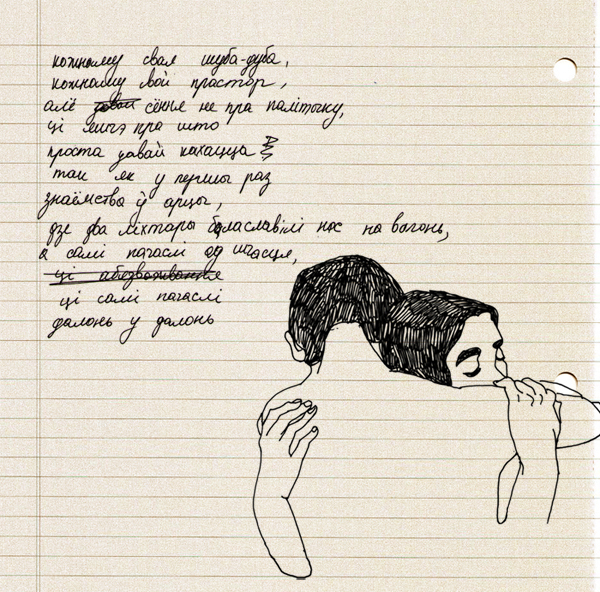 кожнаму свая шуба-дуба,
кожнаму свой прастор,
але давай сёння не пра палітычку,
ці яшчэ пра што
проста давай кахацца
так як у першы раз
знаёмства ў арцы,
дзе два ліхтары балаславілі нас на вагонь,
а самі пагаслі ад шчасця,
ці абезважвання
ці самі пагаслі
далонь у далонь